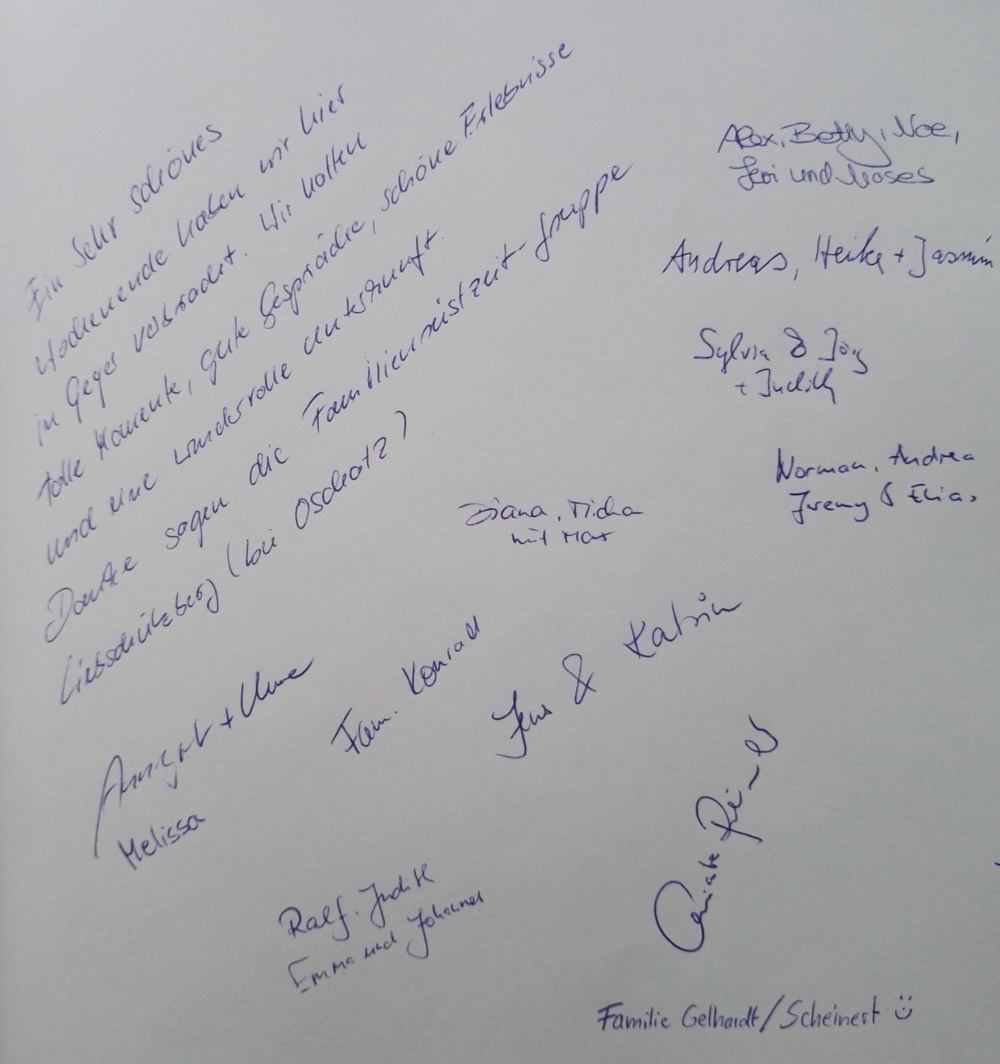 Ein sehr schönes
Wochenende haben wir hier
in Geyer verbracht. Wir hatten
tolle Momente, gute Gespräche, schöne Erlebnisse
und eine wundervolle Unterkunft.
Danke sagen die Familienrüstzeit-Gruppe
Liebschützberg (bei Oschatz)
Alex, Betty, Noe,
und Moses
Andreas, Heike + Jasmin
Sylvia & Jörg
+ Judith
Norman, Andrea
Jeremy & Elias
Diana, Micha
mit Max
Annegret + Uwe
Melissa
Fam. Konrad
Jens & Katrin
Ralf. Judith
Emma und Johannes
Familie Gelhardt/Scheinert